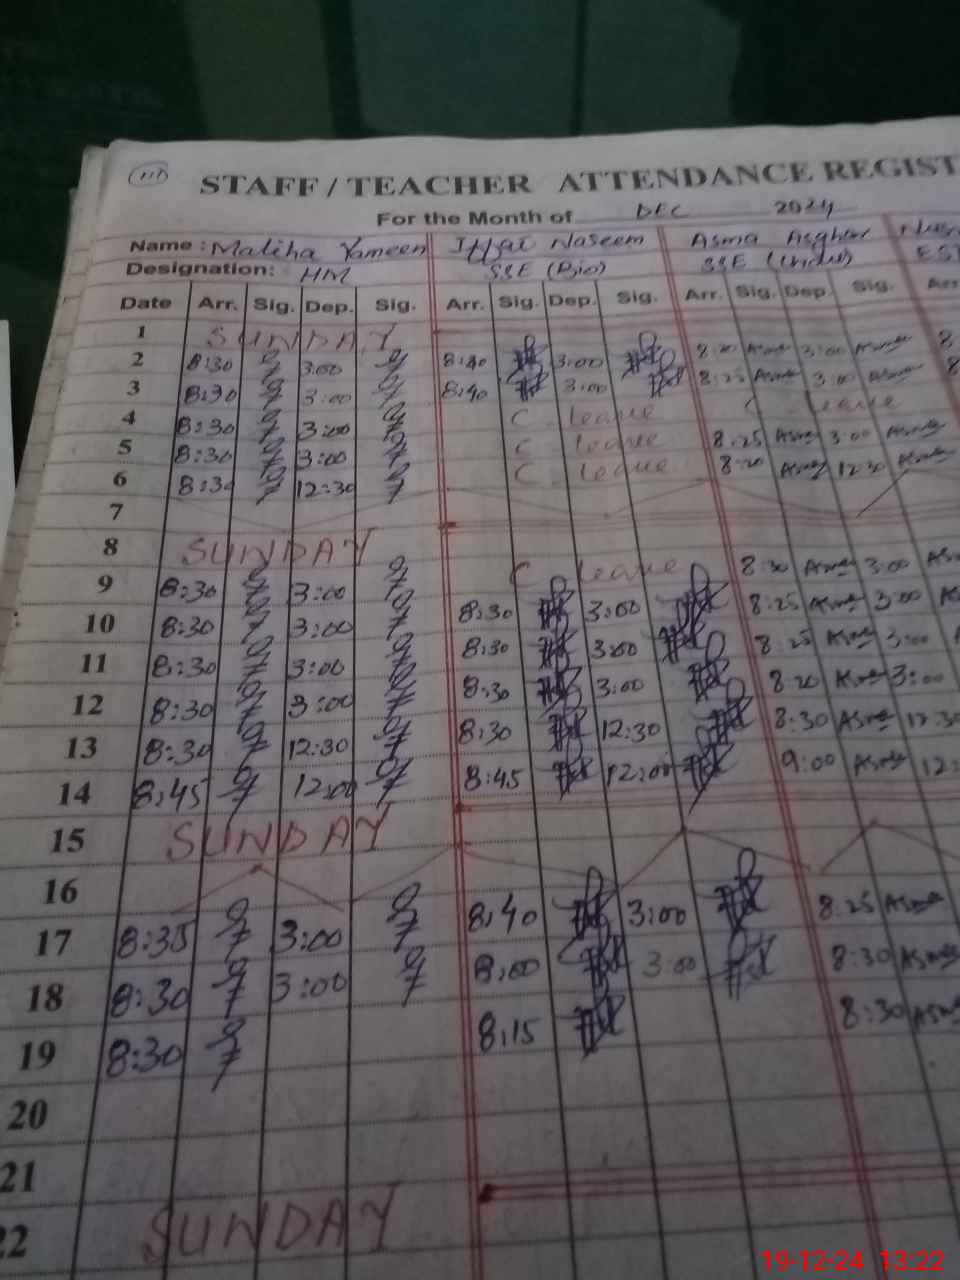 STAFF / TEACHER ATTENDANCE REGIST
For the Month of DEC 2024
Name : Maliha Yameen Iffat Naseem Asma Asghar
Designation: HM SSE (Bio) SSE (Urdu) EST
Date Arr. Sig. Dep. Sig. Arr. Sig. Dep. Sig. Arr. Sig. Dep. Sig. Arr
1 SUNDAY
2 8:30 3:00 8:40 3:00 8:20 Asma 3:00 Asma 8
3 8:30 3:00 8:40 3:00 8:25 Asma 3:00 Asma 8
4 8:30 3:00 C. leave C leave
5 8:30 3:00 C. leave 8:25 Asma 3:00 Asma
6 8:30 12:30 C. leave 8:20 Asma 12:30 Asma
7
8 SUNDAY
9 8:30 3:00 C leave 8:30 Asma 3:00 As
10 8:30 3:00 8:30 3:00 8:25 Asma 3:00 A
11 8:30 3:00 8:30 3:00 8:25 Asma 3:00 A
12 8:30 3:00 8:30 3:00 8:20 Asma 3:00
13 8:30 12:30 8:30 12:30 8:30 Asma 12:30
14 8:45 12:00 8:45 12:00 9:00 Asma 12:
15 SUNDAY
16
17 8:35 3:00 8:40 3:00 8:25 Asma
18 8:30 3:00 8:00 3:00 8:30 Asma
19 8:30 8:15 8:30 Asm
20
21
22 SUNDAY
19-12-24 13:22